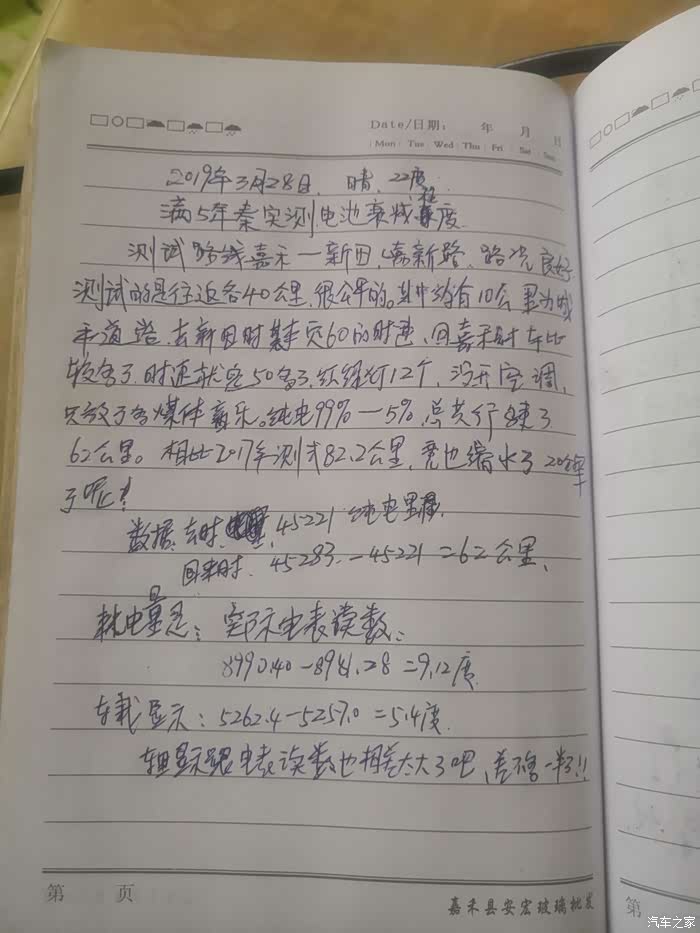 Date/日期: 年 月 日
Mon Tue Wed Thu Fri Sat Sun
2019年3月28日, 晴, 22度.
满5年秦实测电池衰减程度
测试路线嘉禾—新田, 嘉新路, 路况良好
测试的是往返各40公里, 很公平的。其中约有10公里为城
市道路, 去新田时基本定60的时速, 回嘉禾时车比
较多了, 时速就定50多了, 红绿灯12个, 没开空调,
只放了多媒体音乐。纯电99%—5%, 总共行驶了
62公里。相比2017年测试82.2公里, 竟也缩水了20公里
了呢!
数据: 去时, 45221 纯电里程,
回来时. 45283.—45221=62公里,
耗电量是: 实际电表读数:
8990.40—8981.28=9.12度.
车载显示: 5262.4—5257.0=5.4度.
车里显示跟电表读数也相差太大了吧, 差不多一半了!!
第 页
嘉禾县安宏玻璃批发
第
汽车之家